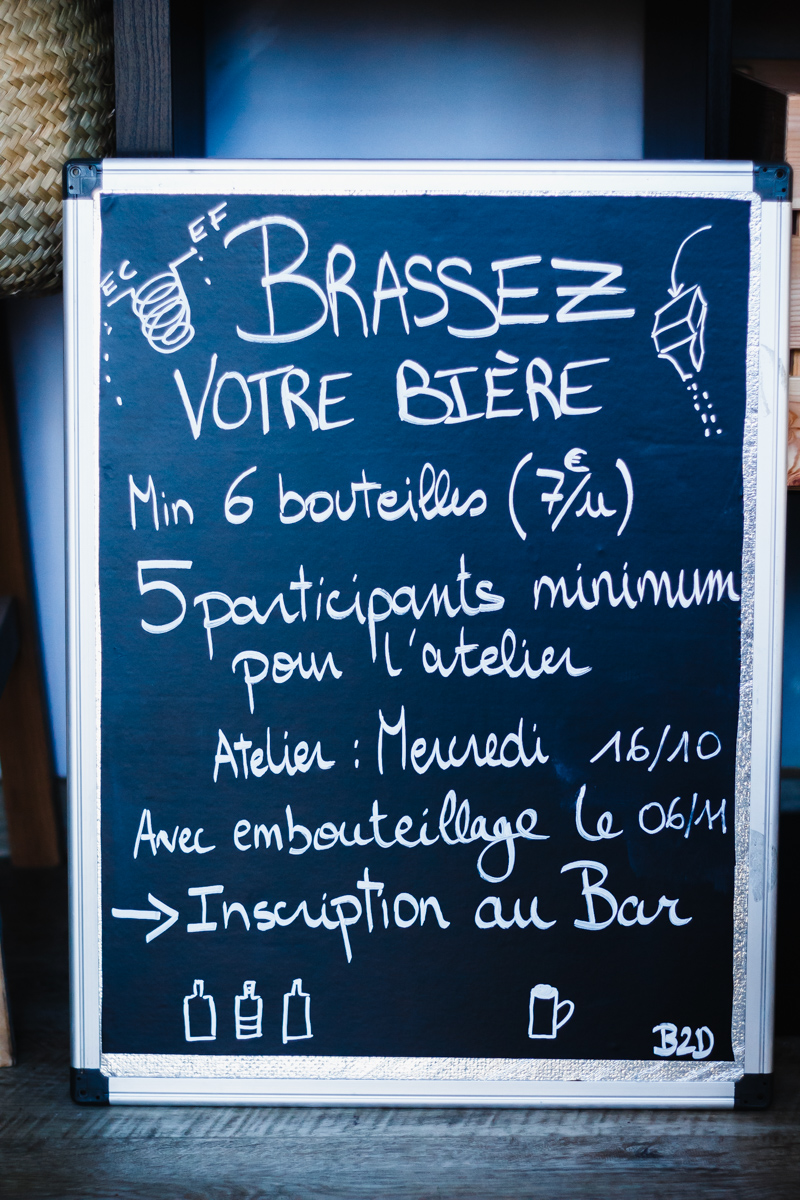 EF
EC
BRASSEZ
VOTRE BIÈRE
Min 6 bouteilles (7€/u)
5 participants minimum
pour l'atelier
Atelier : Mercredi 16/10
Avec embouteillage le 06/11
→ Inscription au Bar
B2D